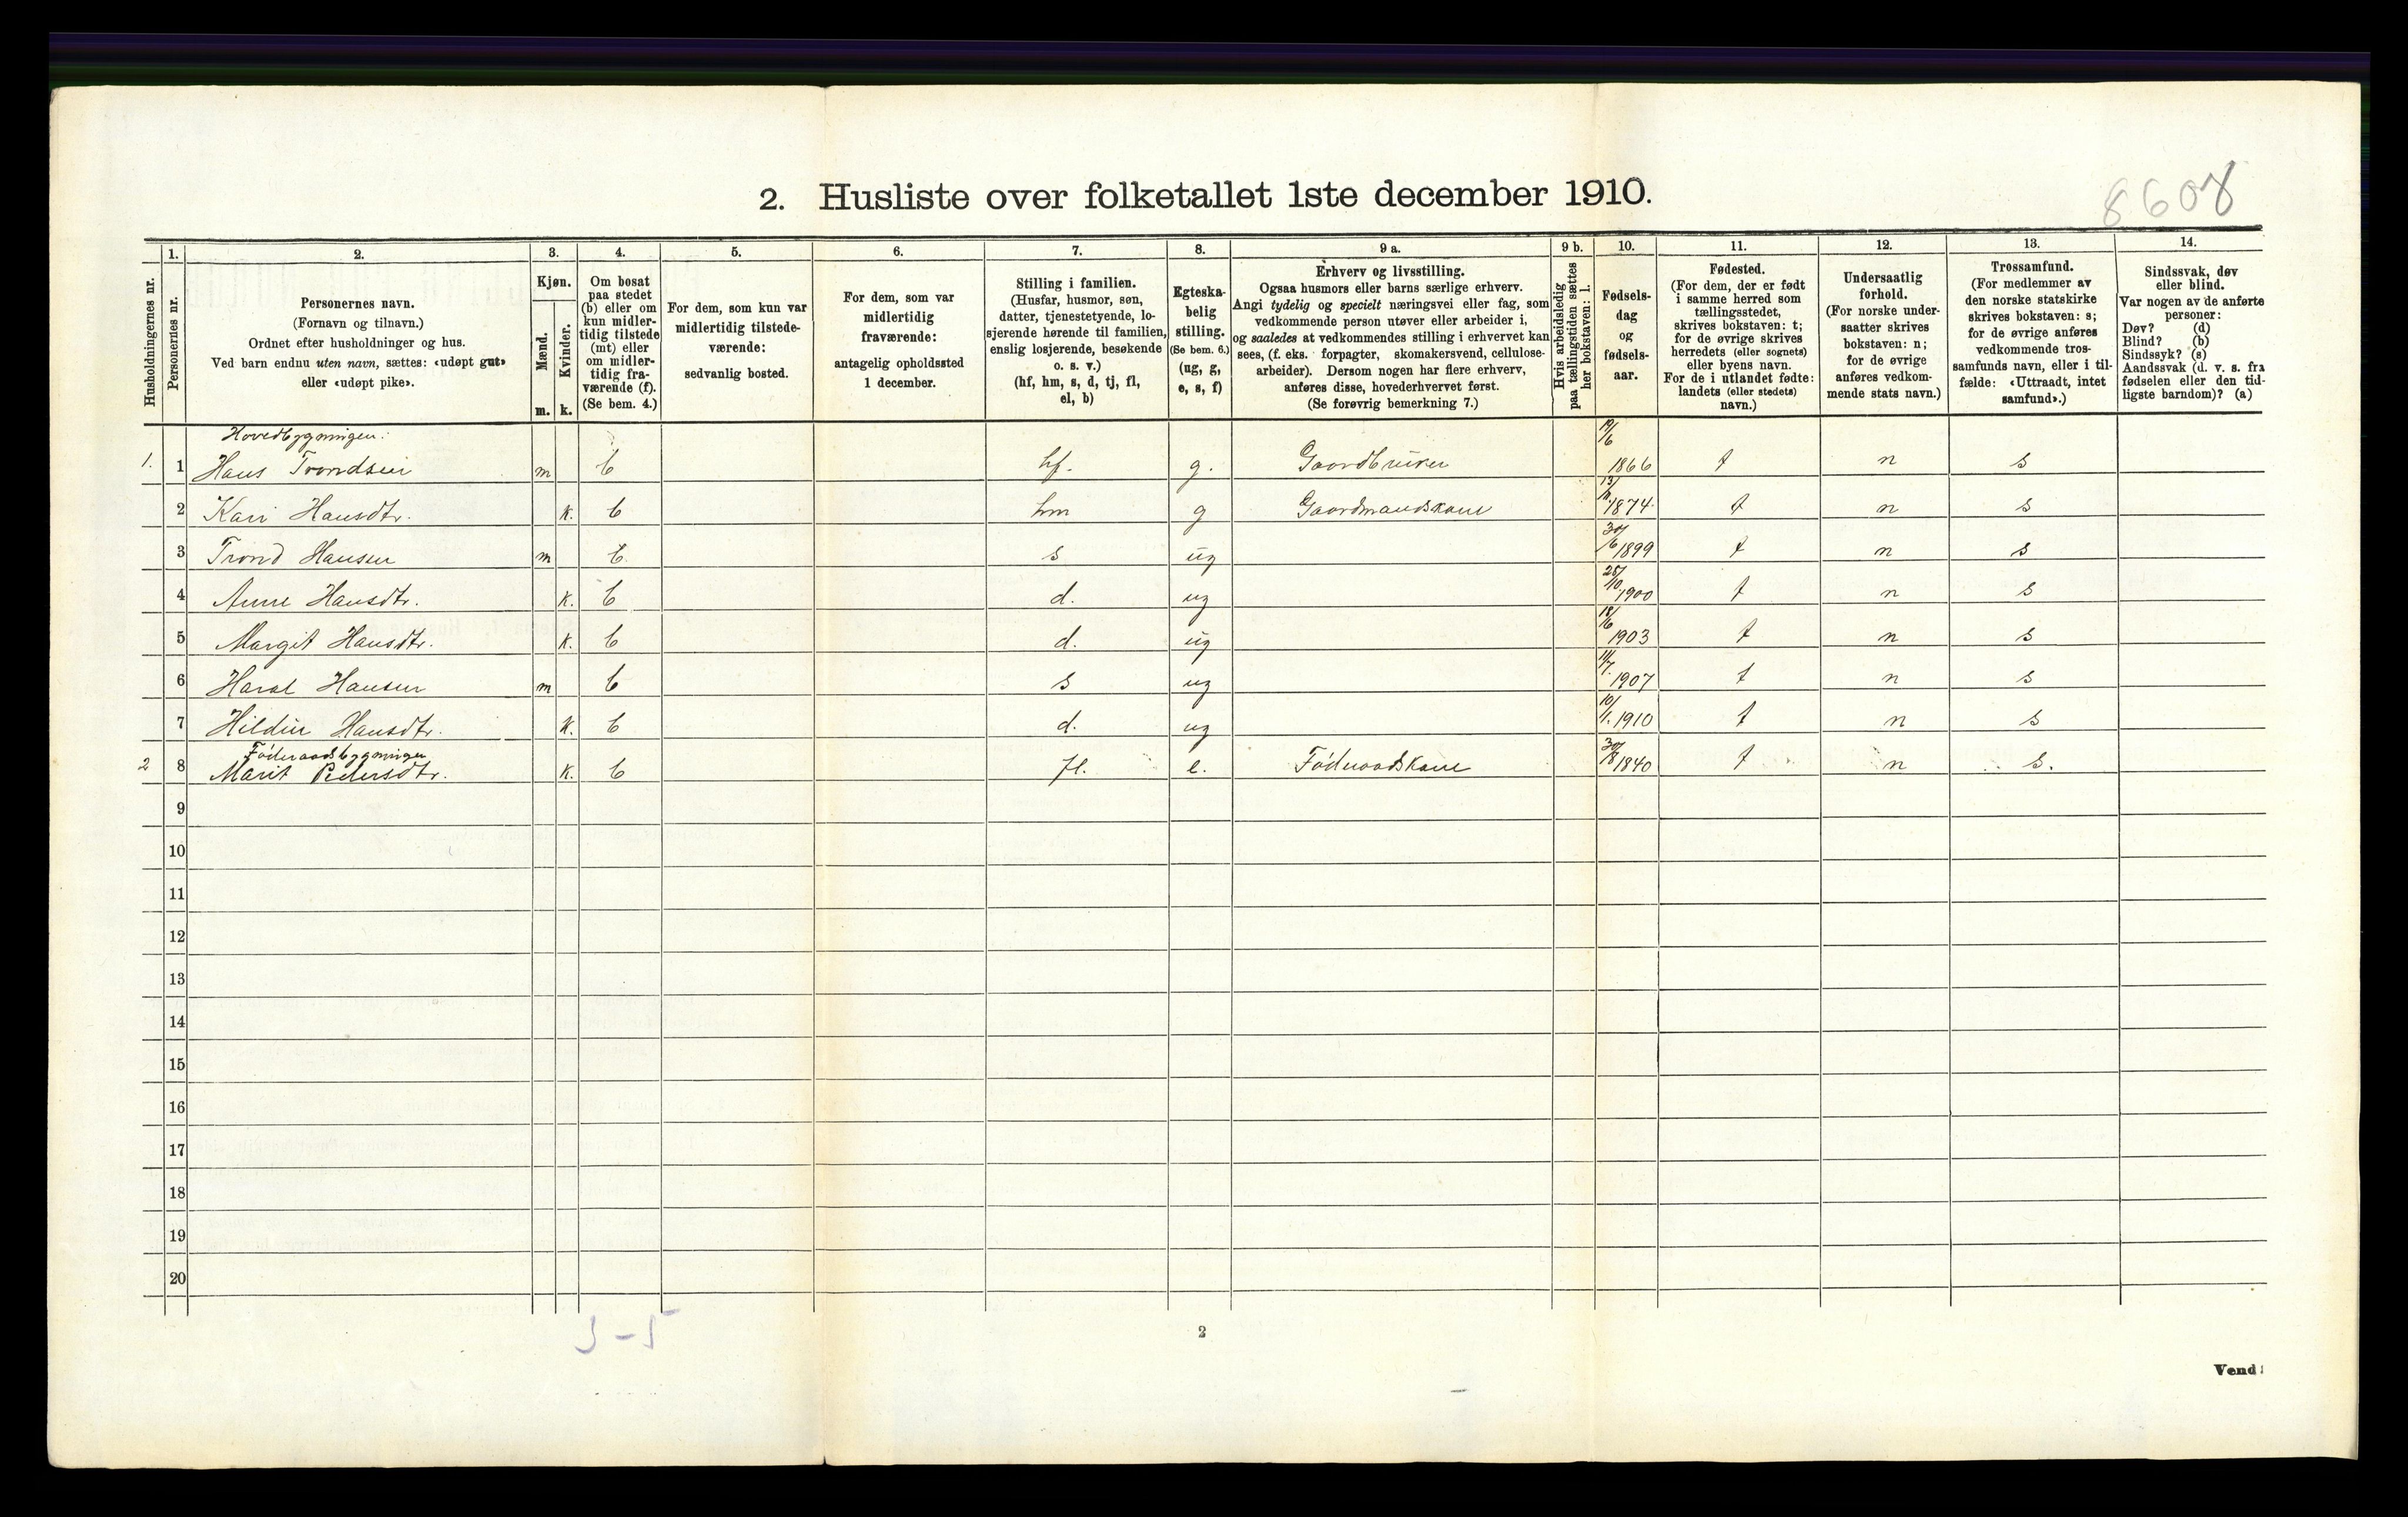 8608
2. Husliste over folketallet 1ste december 1910.
Husholdningernes nr.
1.
Personernes nr.
2.
Personernes navn.
(Fornavn og tilnavn.)
Ordnet efter husholdninger og hus.
Ved barn endnu uten navn, sættes: «udøpt gut»
eller «udøpt pike».
3.
Kjøn.
Mænd.
Kvinder.
m. k.
4.
Om bosat
paa stedet
(b) eller om
kun midler-
tidig tilstede
(mt) eller
om midler-
tidig fra-
værende (f).
(Se bem. 4.)
5.
For dem, som kun var
midlertidig tilstede-
værende:
sedvanlig bosted.
6.
For dem, som var
midlertidig
fraværende:
antagelig opholdssted
1 december.
7.
Stilling i familien.
(Husfar, husmor, søn,
datter, tjenestetyende, lo-
sjerende hørende til familien,
enslig losjerende, besøkende
o. s. v.)
(hf, hm, s, d, tj, fl,
el, b)
8.
Egteska-
belig
stilling.
(Se bem. 6.)
(ug, g,
e, s, f)
9 a.
Erhverv og livsstilling.
Ogsaa husmors eller barns særlige erhverv.
Angi tydelig og specielt næringsvei eller fag, som
vedkommende person utøver eller arbeider i,
og saaledes at vedkommendes stilling i erhvervet kan
sees, (f. eks. forpagter, skomakersvend, cellulose-
arbeider). Dersom nogen har flere erhverv,
anføres disse, hovederhvervet først.
(Se forøvrig bemerkning 7.)
9 b.
Hvis arbeidsledig
paa tællingstiden sættes
her bokstaven: l.
10.
Fødsels-
dag
og
fødsels-
aar.
11.
Fødested.
(For dem, der er født
i samme herred som
tællingsstedet,
skrives bokstaven: t;
for de øvrige skrives
herredets (eller sognets)
eller byens navn.
For de i utlandet fødte:
landets (eller stedets)
navn.)
12.
Undersaatlig
forhold.
(For norske under-
saatter skrives
bokstaven: n;
for de øvrige
anføres vedkom-
mende stats navn.)
13.
Trossamfund.
(For medlemmer av
den norske statskirke
skrives bokstaven: s;
for de øvrige anføres
vedkommende tros-
samfunds navn, eller i til-
fælde: «Uttraadt, intet
samfund».)
14.
Sindssvak, døv
eller blind.
Var nogen av de anførte
personer:
Døv? (d)
Blind? (b)
Sindssyk? (s)
Aandssvak (d. v. s. fra
fødselen eller den tid-
ligste barndom)? (a)
Hovedbygningen:
1. 1 Hans Trondsen m b hf. g. Gaardbruker 19/6 1866 t n s
2 Kari Hansdtr. k. b hm g Gaardmandskone 1874 t n s
3 Trond Hansen m b s ug 30/6 1899 t n s
4 Anne Hansdtr. k. b d. ug 25/10 1900 t n s
5 Margit Hansdtr. k. b d. ug 18/6 1903 t n s
6 Haral Hansen m b s ug 1907 t n s
7 Hildur Hansdtr. k. b d. ug 10/1. 1910 t n s
Føderaadsbygningen
2 8 Marit Pedersdtr. k. b fl. e. Føderaadskone 30/8 1840 t n s.
9
10
11
12
13
14
15
16
17
18
19
20
3 - 5
2
Vend!